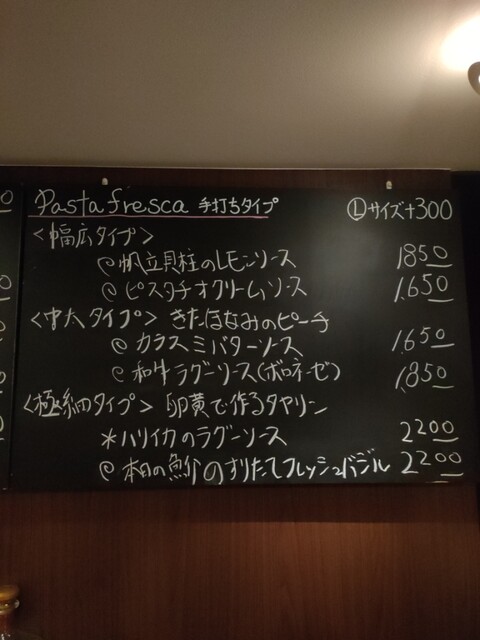 Pasta fresca 手打ちタイプ Ⓛサイズ+300
<幅広タイプ>
帆立貝柱のレモンソース 1,850
ピスタチオクリームソース 1,650
<中太タイプ> きたほなみのピーチ
カラスミバターソース 1,650
和牛ラグーソース(ボロネーゼ) 1,850
<極細タイプ> 卵黄で作るタヤリン
*ハリイカのラグーソース 2200
本日の魚介のすりたてフレッシュバジル 2200